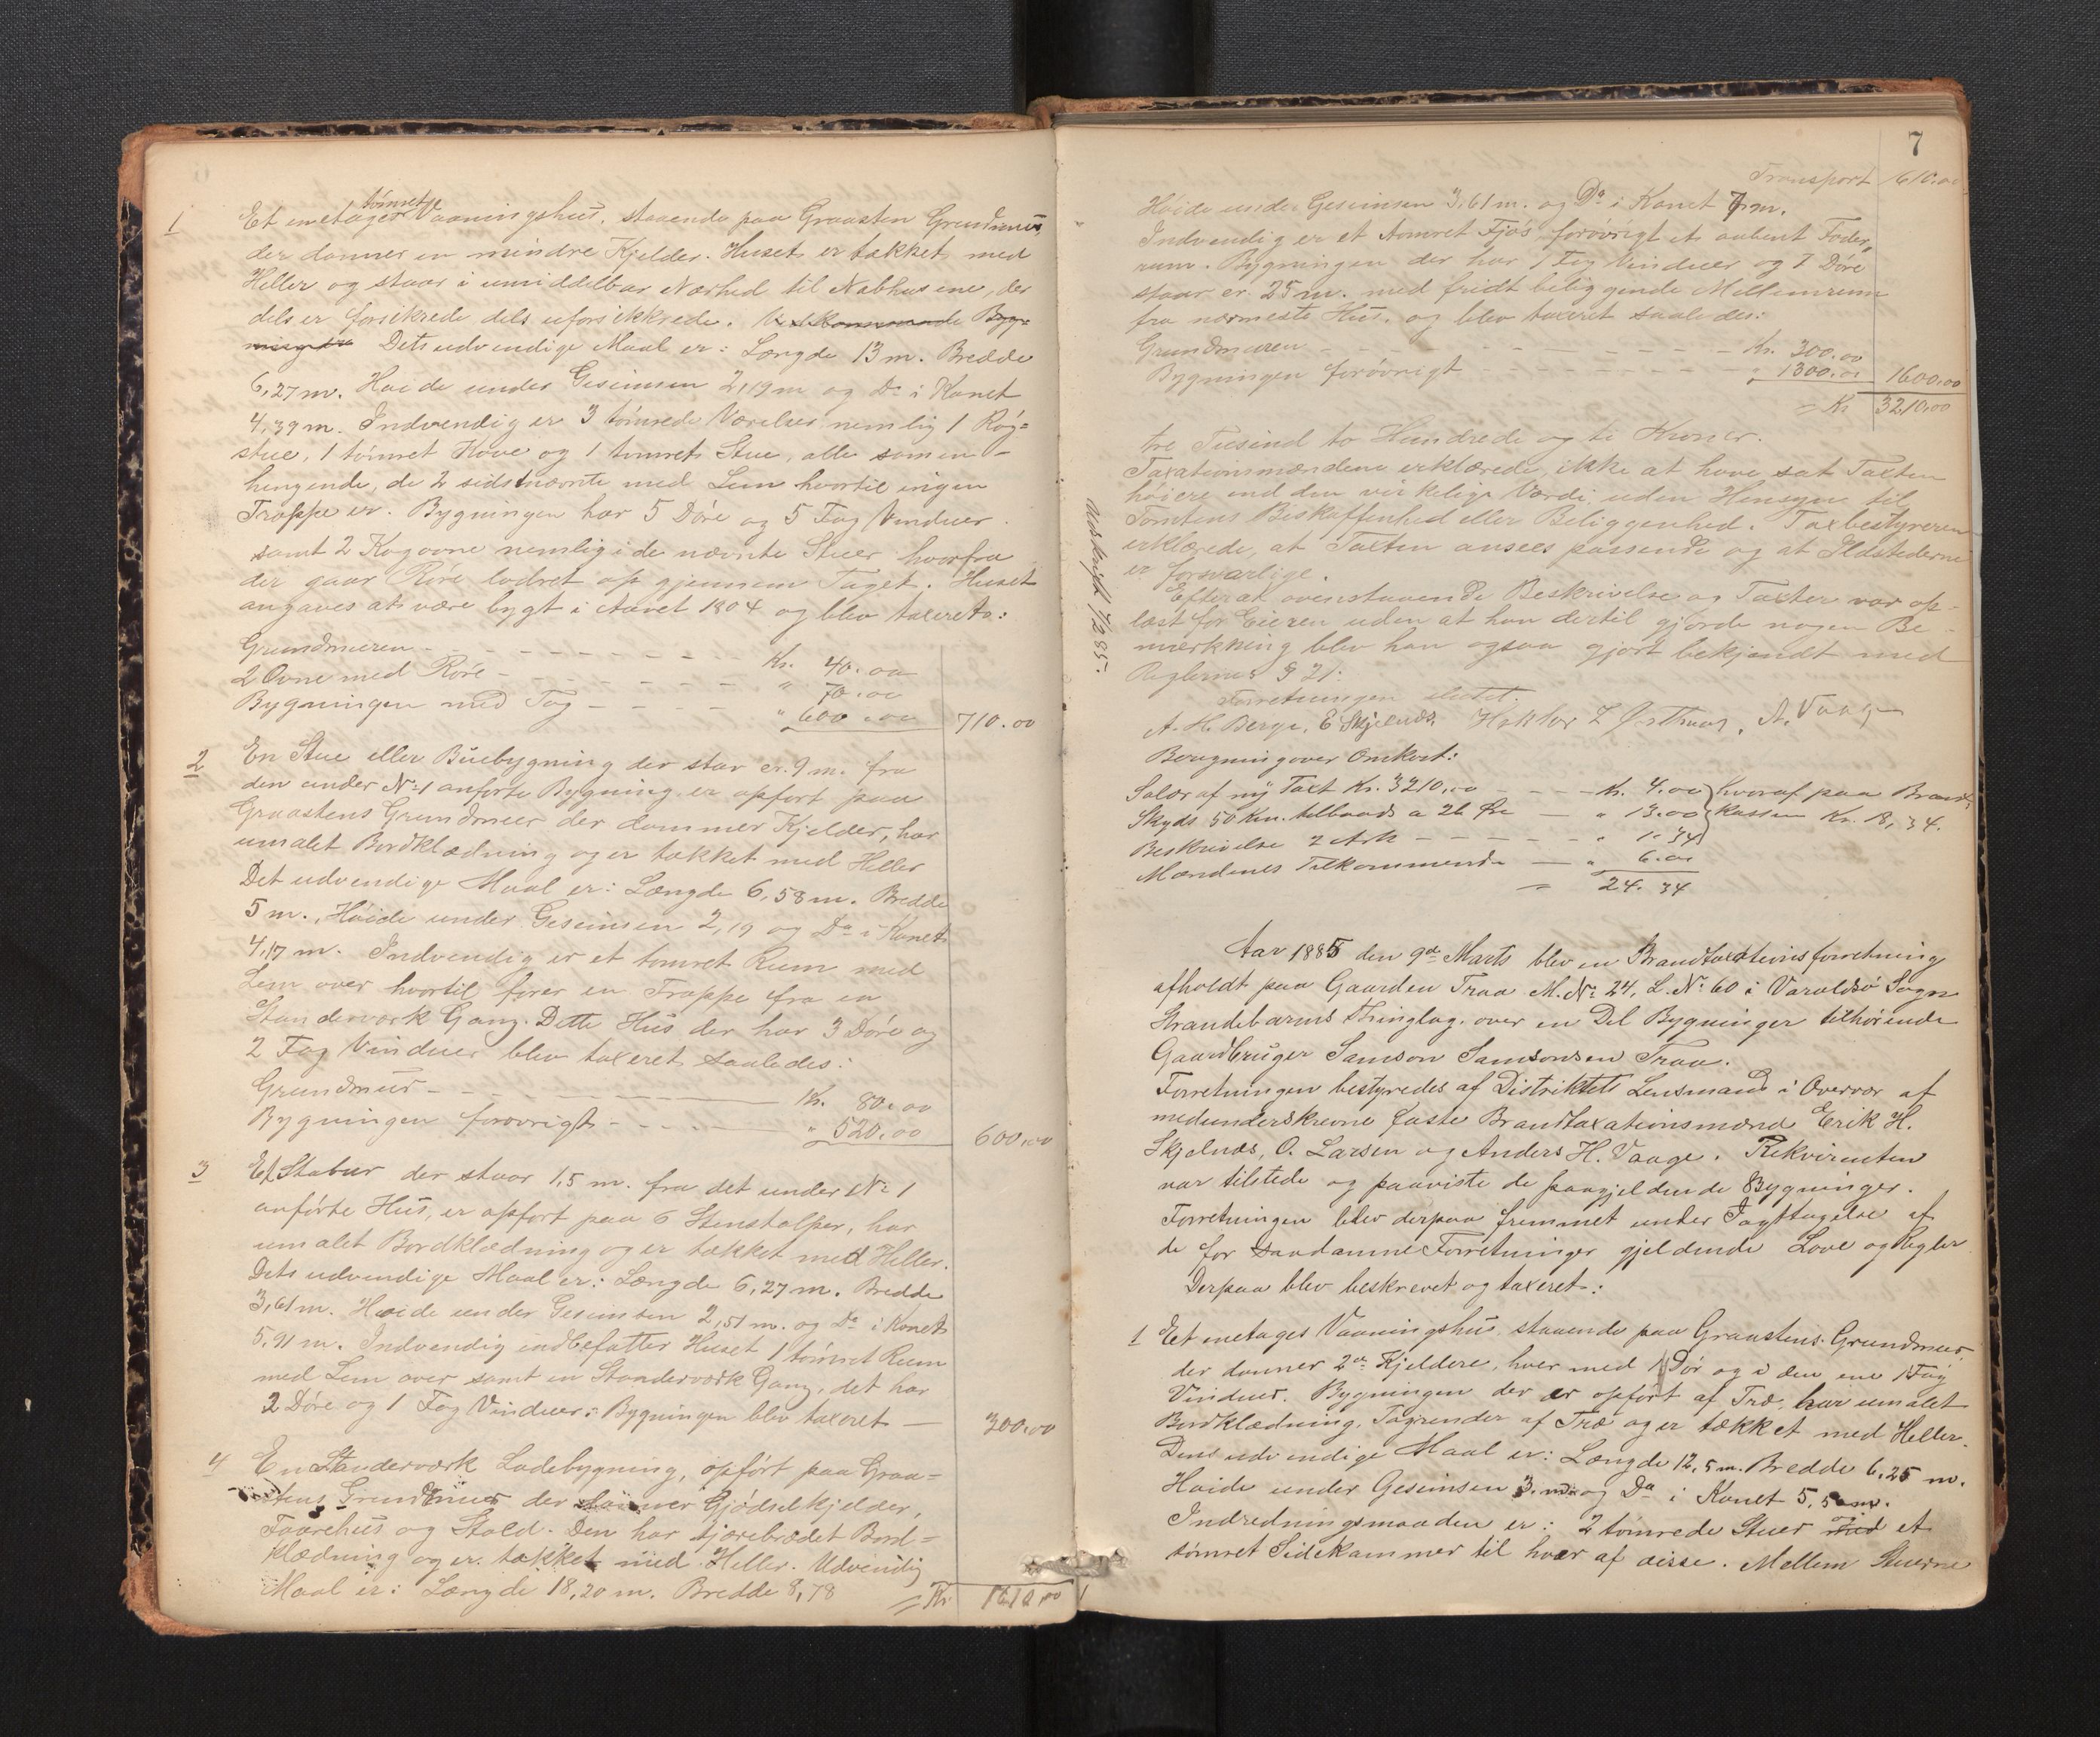 1 Et enetages tömret Vaaningshus, staaende paa Graasten Grundmur,
der danner en mindre Kjelder. Huset er tækket med
Heller og staar i umiddelbar Nærhed til Nabhusene, der
dels er forsikrede dels uforsikkrede. Byg-
ninger Dets udvendige Maal er: Længde 13 m. Bredde
6,27 m. Høide under Gesimsen 2,19 m og Do i Kanet
4,39 m. Indvendig er 3 tömrede Værelser nemlig 1 Røg-
stue, 1 tömret Kove og 1 tömret Stue, alle samen-
hengende, de 2 sidstnævnte med Lem hvortil ingen
Trappe er. Bygningen har 5 Döre og 5 Fag Vinduer
samt 2 Kogovne nemlig i de nævnte Stuer hvorfra
der gaar Röre lodret op gjennem Taget. Huset
angaves at være bygt i Aaret 1804 og blev taxeret:
Grundmuren - - - - - Kr. 40.00
2 Ovne med Röre - - - - - " 70.00
Bygningen med Tag - - - - " 600.00 710.00
2 En Stue eller Buebygning der star cr. 9 m. fra
den under No 1 anförte Bygning er opfort paa
Graastens Grundmuur der danner Kjelder, har
umalet Bordklædning og er tækket med Heller
Det udvendige Maal er: Længde 6,58 m. Bredde
5 m., Höide under Gesimsen 2,19 og Do i Kanet
4,17 m. Indvendig er et tomret Rum med
Lem over hvortil fører en Trappe fra en
Standerværk Gang. Dette Hus der har 3 Döre og
2 Fag Vinduer blev taxeret saaledes:
Grundmur - - - - Kr. 80.00
Bygningen forovrigt - - - - " 520.00 600.00
3 Et Stabur der staar 1,5 m. fra det under No 1
anförte Hus, er opfort paa 6 Stenstolper, har
umalet Bordklædning og er tækket med Heller.
Dets udvendige Maal er: Længde 6,27 m. Bredde
3,61 m. Høide under Gesimsen 2,51 m. og Do i Kanet
5,91 m. Indvendig indbefatter Huset 1 tömret Rum
med Lem over samt en Standerværk Gang, det har
2 Döre og 1 Fag Vinduer. Bygningen blev taxeret — 300.00
4 En Standerværk Ladebygning, opfört paa Graa-
stens Grundmuur der danner Gjödselkjelder,
Faarehus og Stald. Den har tjærebrædet Bord-
klædning og er tækket med Heller. Udvendig
Maal er: Længde 18,20 m. Bredde 8,78 = Kr. 1610,00
7
Transport 1610.00
Höide under Gesimsen 3,61 m. og Do i Kanet 7 m.
Indvendig er et tomret Fjös forövrigt et aabent Foder-
rum. Bygningen der har 1 Fag Vinduer og 7 Döre
staar cr. 25 m. med fridt beliggende Mellemrum
fra nærmeste Hus, og blev taxeret saaledes:
Grundmuren - - - - - Kr. 300.00
Bygningen forövrigt - - - - - " 1300.00 1600.00
= Kr. 3210,00
tre Tusind to Hundrede og ti Kroner.
Taxationsmændene erklærede, ikke at have sat Taxten
höiere end den virkelige Værdi uden Hensyn til
Tomtens Beskaffenhed eller Beliggenhed. Taxbestyreren
erklærede, at Taxten ansees passende og at Ildstederne
er forsvarlige.
Efterat ovenstaaende Beskrivelse og Taxter var op-
læst for Eieren uden at han dertil gjorde nogen Be-
mærkning blev han ogsaa gjort bekjendt med
Reglernes § 21.
Forretningen sluttet.
A. H. Berge, E Skjelnæs, Haktor L Østhuus, A. Vaage
Beregning over Omkost:
Salær af ny Taxt Kr. 3210,00 - - - - Kr. 4.00 hvoraf paa Brand-
Skyds 50 Km. tilbaads a 26 Øre — " 13.00 kassen Kr. 18,34.
Beskrivelse 2 Ark - - - - - " 1.34
Mændenes Tilkommende — " 6.00
= 24.34
Udskrift 1/2 85.
Aar 1885 den 9de Marts blev en Brandtaxationsforretning
afholdt paa Gaarden Traa M. No 24, L. No 60 i Varaldsö Sogn
Strandebarms Thinglag, over en Del Bygninger tilhörende
Gaardbruger Samson Samsonsen Traa.
Forretningen bestyredes af Distriktets Lensmand i Overvær af
medunderskrevne faste Brandtaxationsmænd Erik H.
Skjelnæs, O. Larsen og Anders H. Vaage. Rekvirenten
var tilstede og paaviste de paagjeldende Bygninger.
Forretningen blev derpaa fremmet under Iagttagelse af
de for saadanne Forretninger gjeldende Love og Regler
Derpaa blev beskrevet og taxeret:
1 Et enetages Vaaningshus, staaende paa Graastens Grundmuur,
der danner 2de Kjeldere, hver med 1 Dör og i den ene 1 Fag
Vinduer. Bygningen der er opfört af Træ, har umalet
Bordklædning, Tagrender af Træ og er tækket med Heller.
Dens udvendige Maal er: Længde 12,5 m. Bredde 6,25 m.
Høide under Gesimsen 3. m. og Do i Kanet 5,50 m.
Indredningsmaaden er: 2 tömrede Stuer med og et
tömret Sidekammer til hver af disse. Mellem Stuerne